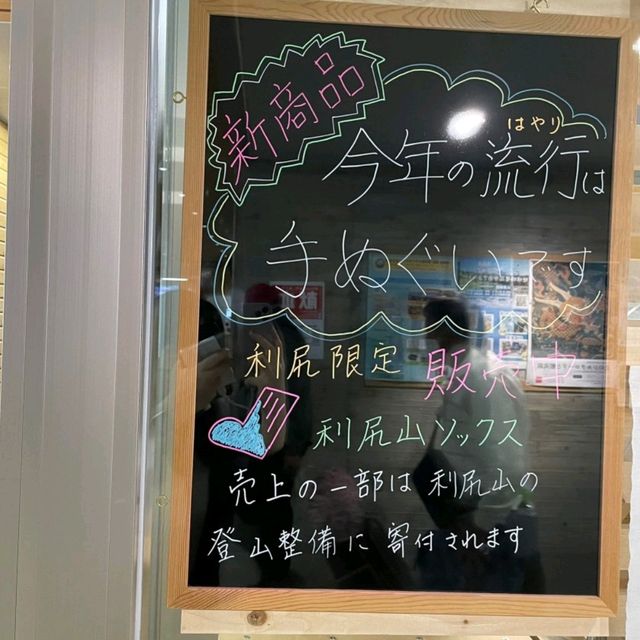 新商品
はやり
今年の流行は
手ぬぐいです
利尻限定
販売中
利尻山ソックス
売上の一部は利尻山の
登山整備に寄付されます